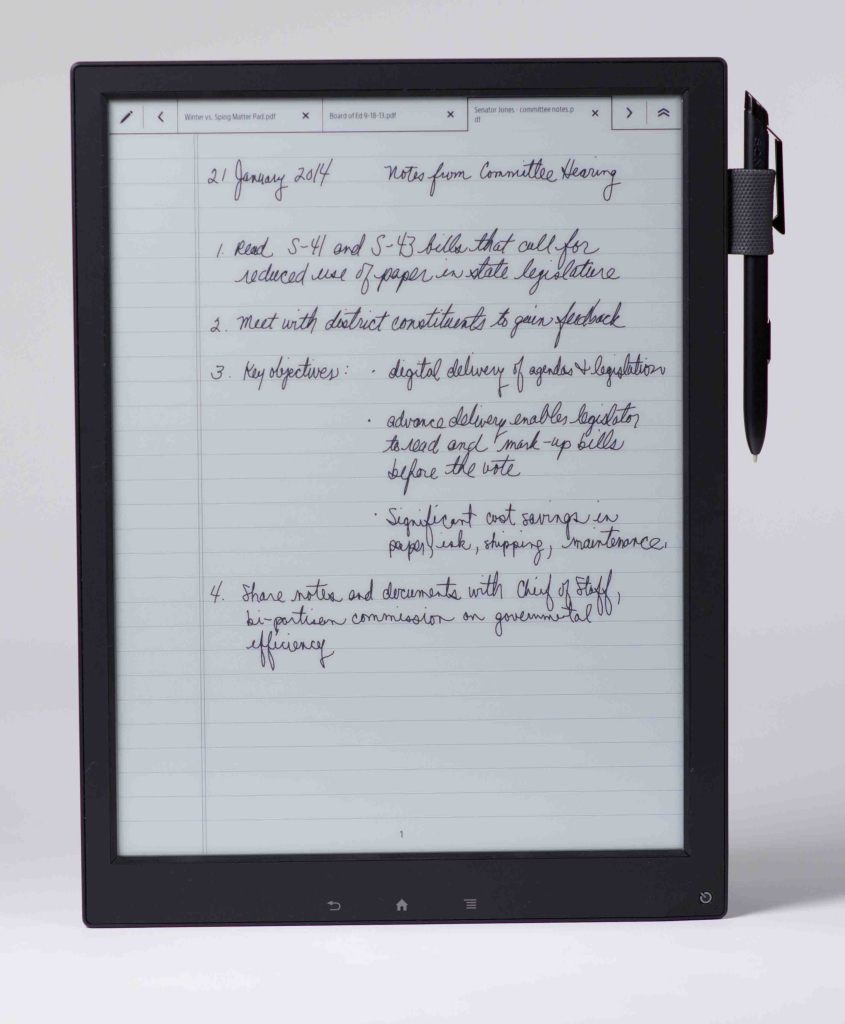 Winter vs. Sping Matter Pad.pdf
Board of Ed 9-18-13.pdf
Senator Jones - committee notes.p
df
21 January 2014 Notes from Committee Hearing
1. Read S-41 and S-43 bills that call for
reduced use of paper in state legislature
2. Meet with district constituents to gain feedback
3. Key objectives: · digital delivery of agendas & legislation
· advance delivery enables legislator
to read and mark-up bills
before the vote
· Significant cost savings in
paper, ink, shipping, maintenance.
4. Share notes and documents with Chief of Staff,
bi-partisan commission on governmental
efficiency
1